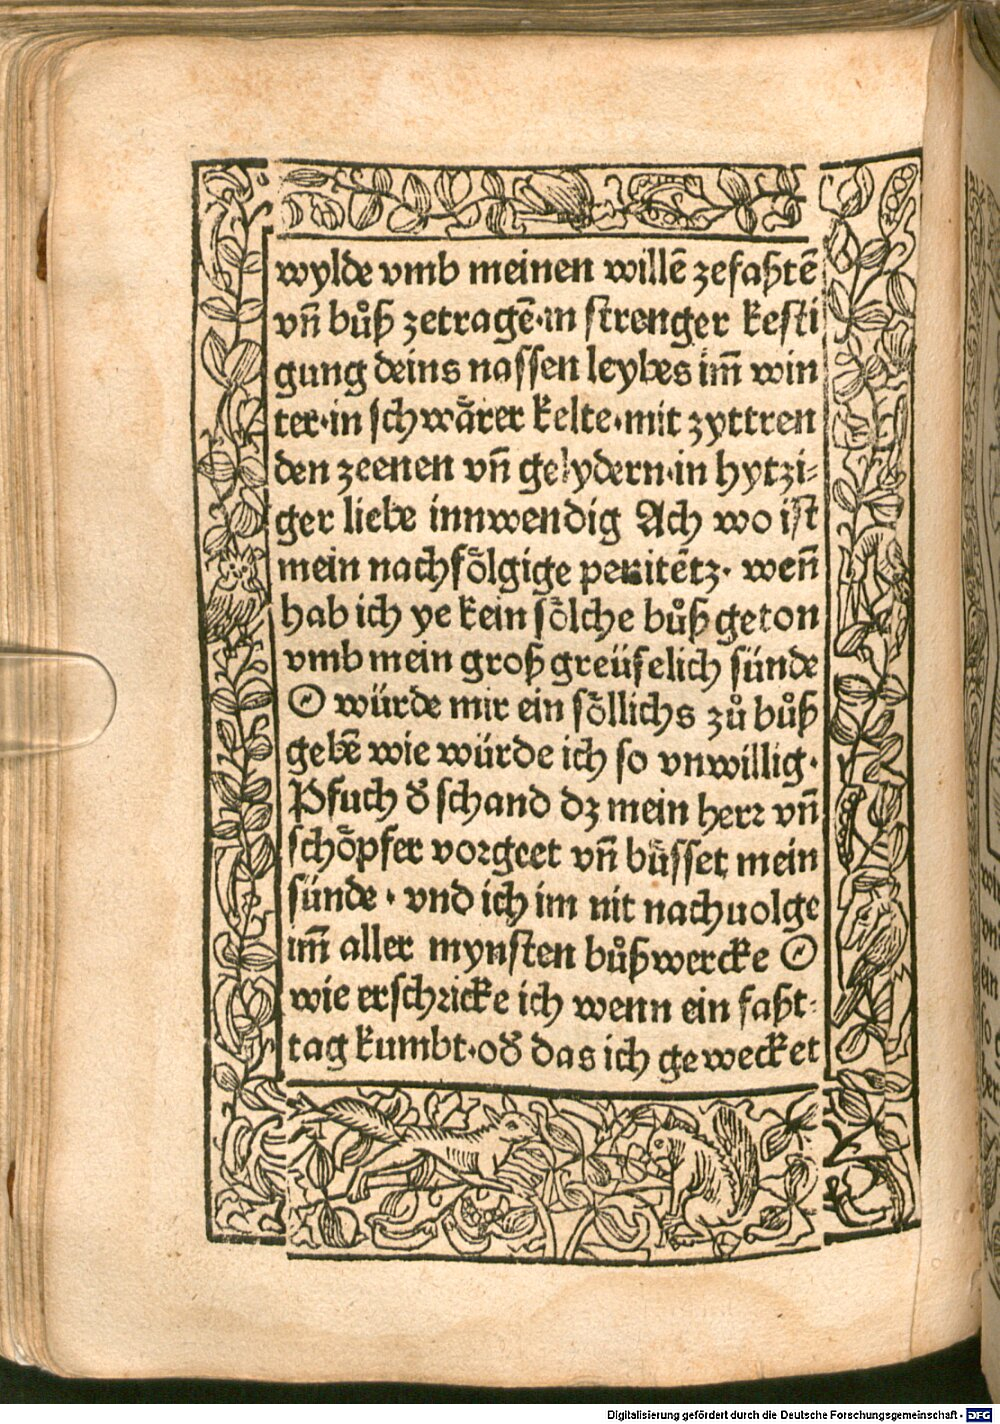 wylde vmb meinen willē zefaßtē
vn̄ bůß zetragē·in strenger kesti
gung deins nassen leybes im̄ win
ter·in schwårer kelte·mit zyttren
den zeenen vn̄ gelydern·in hytzi⸗
ger liebe innwendig Ach wo ist
mein nachfölgige penitētz· wen̄
hab ich ye kein sölche bůß geton
vmb mein groß greüselich sünde
O würde mir ein söllichs zů bůß
gebē wie würde ich so vnwillig·
Pfuch ð schand dz mein herꝛ vn̄
schöpfer voꝛgeet vn̄ bůsset mein
sünde · vnd ich im nit nachuolge
im̄ aller mynsten bůßwercke O
wie erschꝛicke ich wenn ein faßt⸗
tag kumbt·oð das ich gewecket
Digitalisierung gefördert durch die Deutsche Forschungsgemeinschaft - DFG